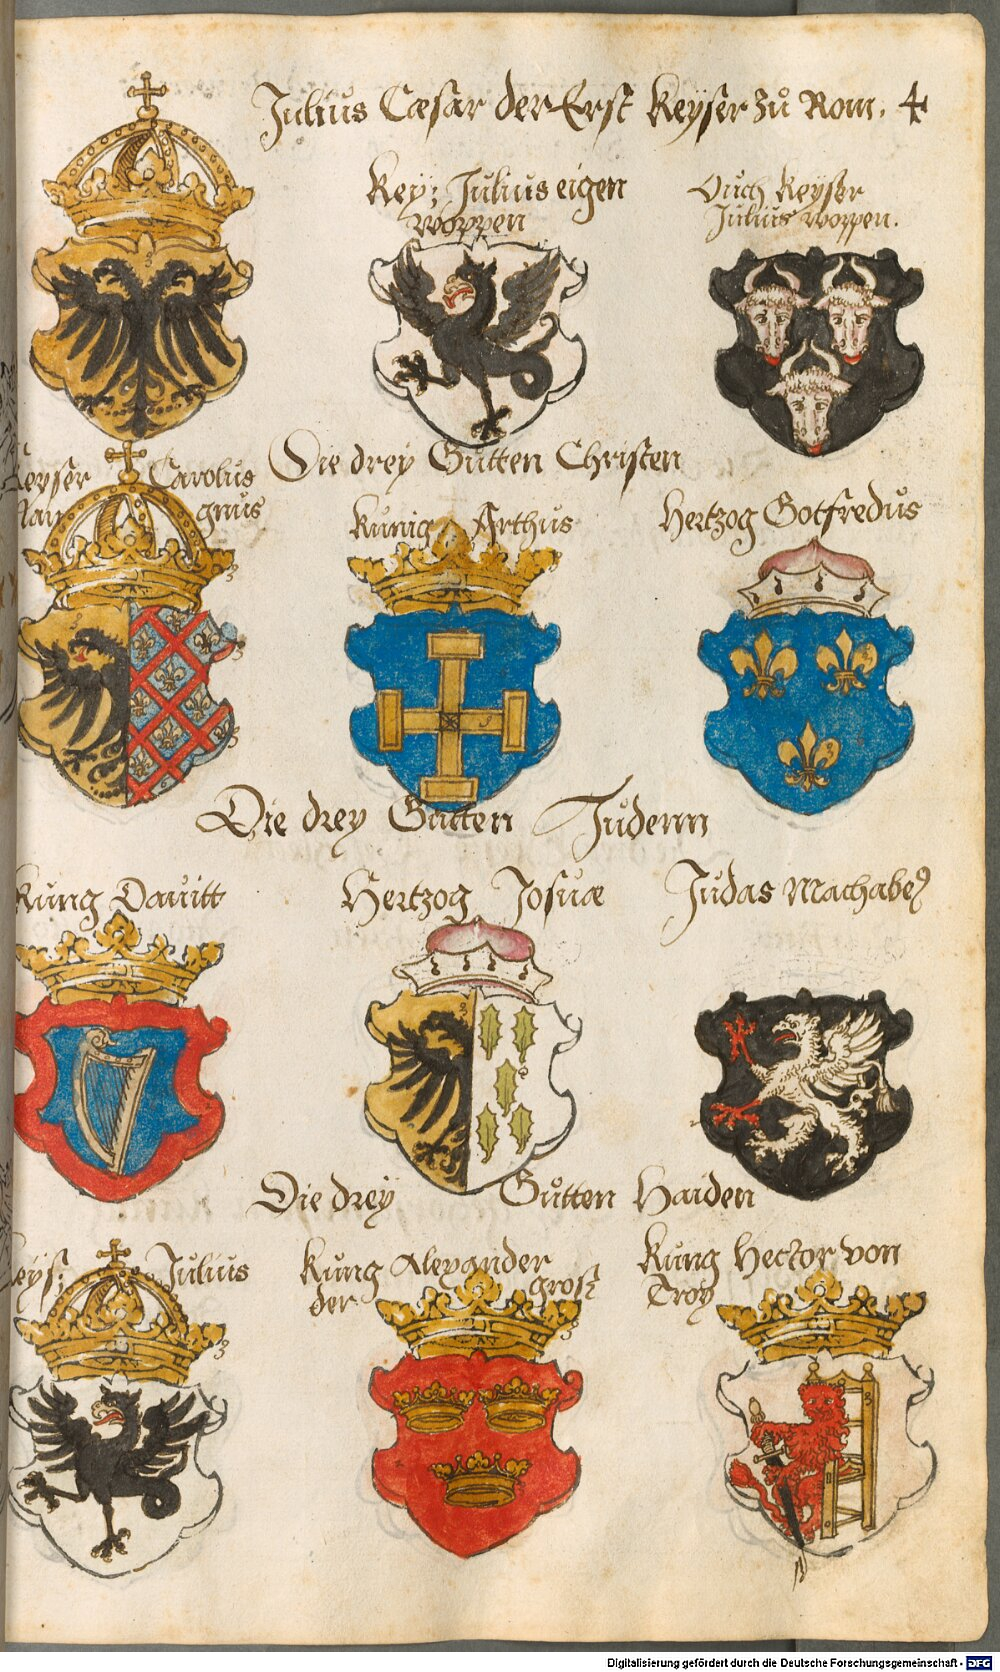 Julius Cæsar der Erst Keyser zů Rom. 4
Key: Julius eigen
Woppen
Ouch Keyser
Julius Woppen.
Die drey Gůtten Christen
Keyser Carolus
gnus
Kunig Arthus
Hertzog Gotfredus
Die drey Gutten Judenn
Kung Dauitt
Hertzog Josuæ
Judas Machabeꝰ
Die drey Gůtten Haiden
Keys: Julius
Kung Alexander
der grost
Kung Hector von
Troy
Digitalisierung gefördert durch die Deutsche Forschungsgemeinschaft - DFG